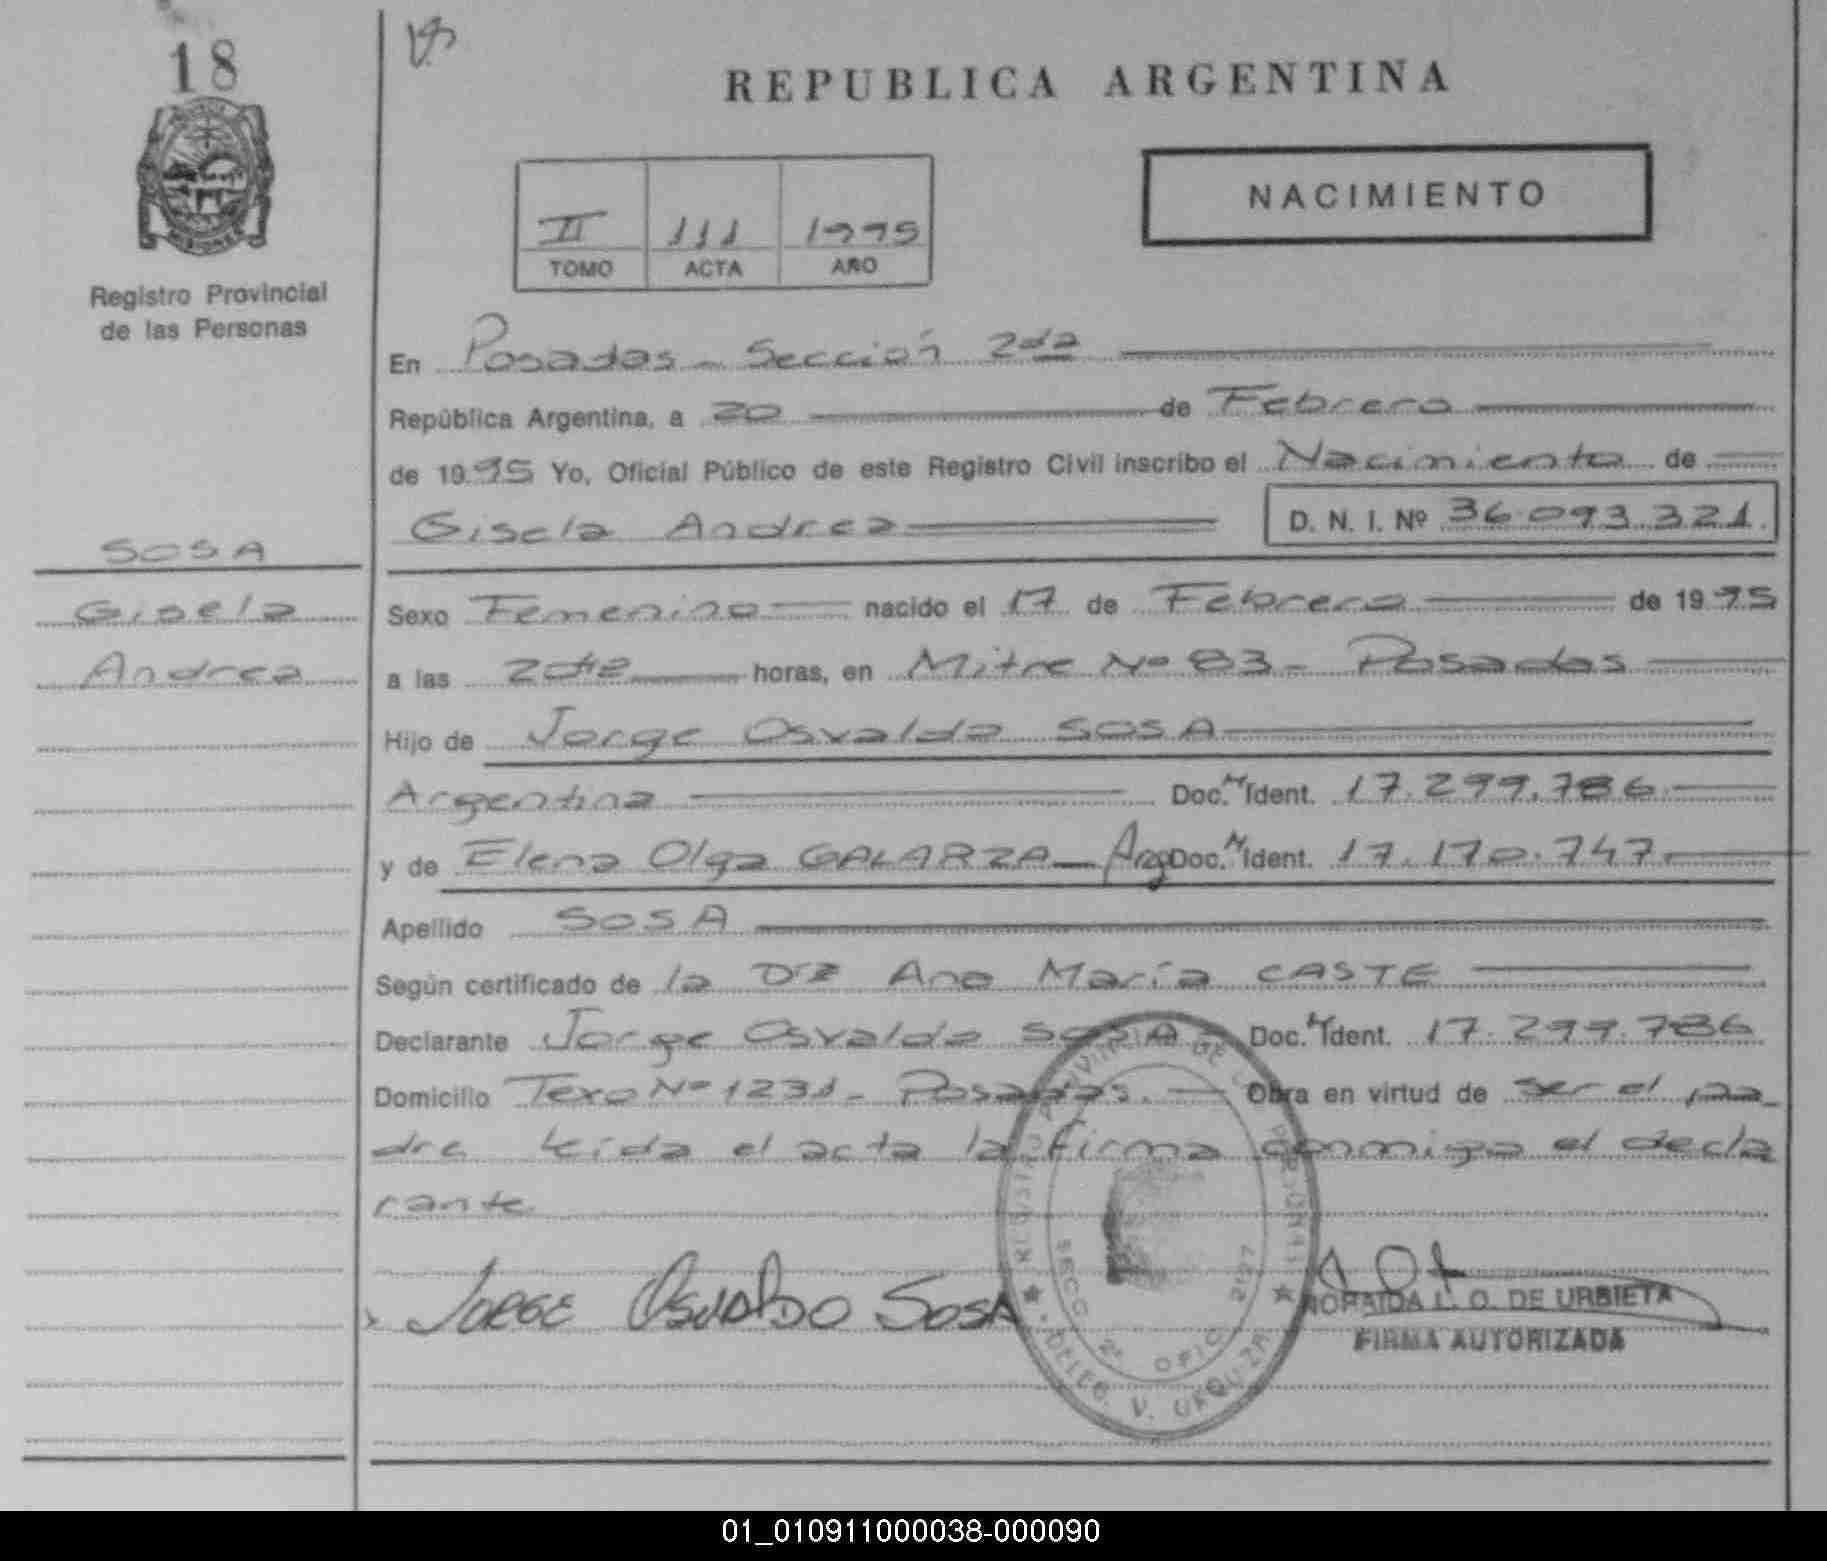 18
REPUBLICA ARGENTINA
NACIMIENTO
II 111 1995
TOMO ACTA AÑO
Registro Provincial
de las Personas
En Posadas - Sección 2da
República Argentina, a 20 de Febrero
de 1995 Yo, Oficial Público de este Registro Civil inscribo el Nacimiento de
Gisela Andrea D. N. I. Nº 36.093.321.
SOSA
Gisela
Andrea
Sexo Femenino nacido el 17 de Febrero de 1995
a las horas, en Mitre Nº 83 - Posadas
Hijo de Jorge Osvaldo SOSA
Argentina Doc. Ident. 17.299.786
y de Elena Olga GALARZA - Arg Doc. Ident. 17.170.747.
Apellido SOSA
Según certificado de la Dra Ana María CASTE
Declarante Jorge Osvaldo SOSA Doc. Ident. 17.299.786
Domicilio Nº 1231 - Posadas. Obra en virtud de ser el pa
dre Leída el acta la firma conmigo el decla
rante
JORGE OSVALDO SOSA
REGISTRO PROVINCIAL DE LAS PERSONAS
SECC 2ª OFIC 2127
DELEG. V. URQUIZA
L. O. DE URBIETA
FIRMA AUTORIZADA
01_010911000038-000090